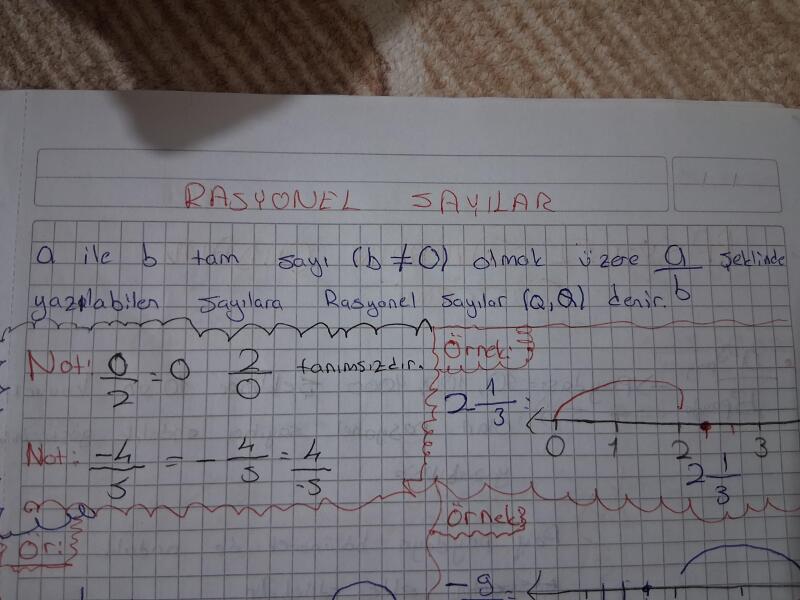 RASYONEL SAYILAR
a ile b tam sayı (b ≠ 0) olmak üzere a/b şeklinde
yazılabilen sayılara Rasyonel sayılar (Q, Q) denir.
Not: 0/2 = 0 2/0 tanımsızdır.
Not: -4/5 = - 4/5 = 4/-5
Örnek:
2 1/3 :
0 1 2 3
2 1/3
Ör:
Örnek:
- 9